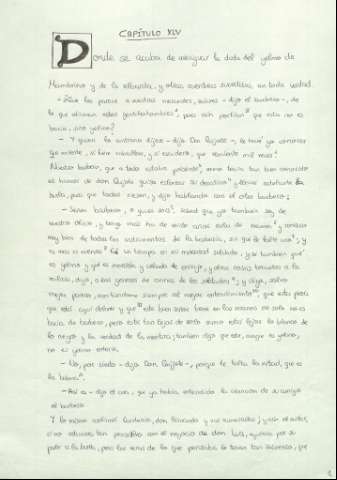 CAPÍTULO XLV
Donde se acaba de averiguar la duda del yelmo de
Mambrino y de la albarda, y otras aventuras sucedidas, con toda verdad.
- ¿Qué les parece a vuestras mercedes, señores - dijo el barbero -, de
lo que afirman estos gentiles hombres, pues aún porfían que esta no es
bacía, sino yelmo?
- Y quien lo contrario dijere - dijo Don Quijote -, le haré yo conocer
que miente, si fuere caballero, y si escudero, que remiente mil veces.
Nuestro barbero, que a todo estaba presente, como tenía tan bien conocido
el humor de don Quijote, quiso esforzar su desatino y llevar adelante la
burla, para que todos riesen, y dijo hablando con el otro barbero:
- Señor barbero, o quien sois, sabed que yo también soy de
vuestro oficio, y tengo más ha de veinte años carta de examen, y conozco
muy bien de todos los instrumentos de la barbería, sin que le falte uno; y
ni más ni menos fui un tiempo en mi mocedad soldado, y sé también qué
es yelmo y qué es morrión y celada de encaje, y otras cosas tocantes a la
milicia, digo, a los géneros de armas de los soldados; y digo, salvo
mejor parecer, remitiéndome siempre al mejor entendimiento, que esta pieza
que está aquí delante y que este buen señor tiene en las manos no sólo no es
bacía de barbero, pero está tan lejos de serlo como está lejos lo blanco de
lo negro y la verdad de la mentira; también digo que este, aunque es yelmo,
no es yelmo entero.
- No, por cierto - dijo Don Quijote -, porque le falta la mitad, que es
la babera.
- Así es - dijo el cura, que ya había entendido la intención de su amigo
el barbero.
Y lo mismo confirmó Cardenio, don Fernando y sus camaradas; y aun el oidor,
si no estuviera tan pensativo con el negocio de don Luis, ayudara por su
parte a la burla, pero las veras de lo que pensaba le tenían tan suspenso, que